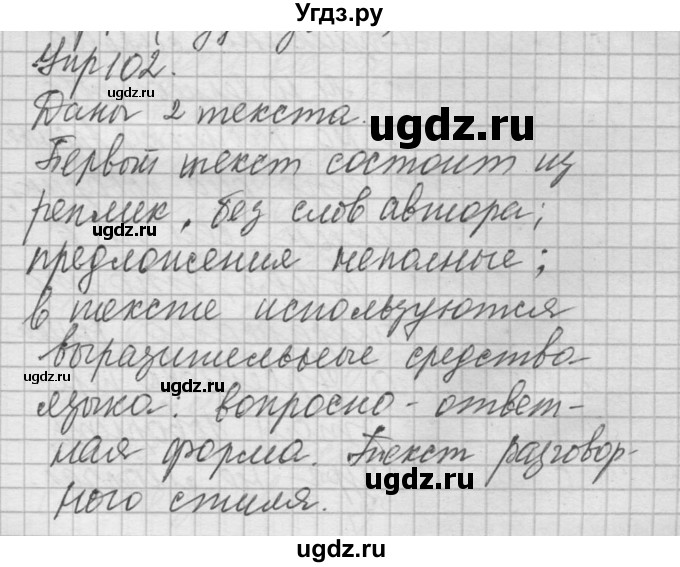 Угдз.ру
Упр 102.
ugdz.ru
Даны 2 текста.
ugdz.ru
Первый текст состоит из
реплик, без слов автора;
ugdz.ru
предложения неполные;
в тексте используются
выразительные средства
ugdz.ru
ugdz.ru
языка: вопросно-ответ-
ная форма. Текст разговор-
ugdz.ru
ного стиля.
ugdz.ru